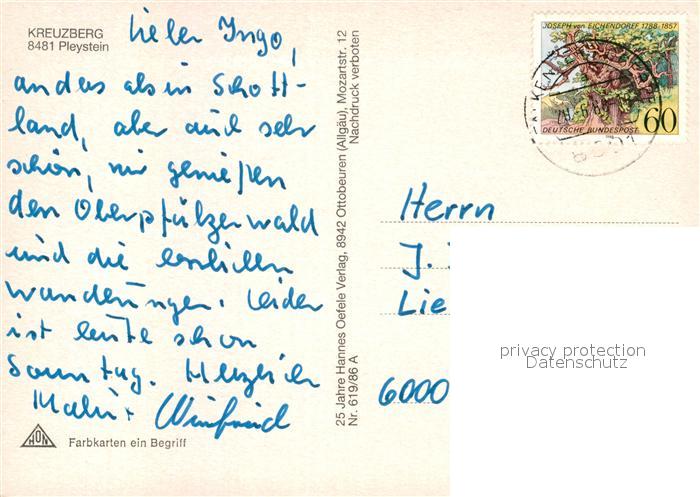 KREUZBERG
8481 Pleystein
Lieber Ingo,
anders als in Schott-
land, aber auch sehr
schön, wir genießen
den Oberpfälzerwald
und die herrlichen
Wanderungen. Leider
ist heute schon
Sonntag. Herzlich
Winfried
HON
Farbkarten ein Begriff
25 Jahre Hannes Oefele Verlag, 8942 Ottobeuren (Allgäu), Mozartstr. 12
Nr. 619/86 A
Nachdruck verboten
JOSEPH von EICHENDORFF 1788-1857
DEUTSCHE BUNDESPOST
60
Herrn
J.
Lie
6000
privacy protection
Datenschutz